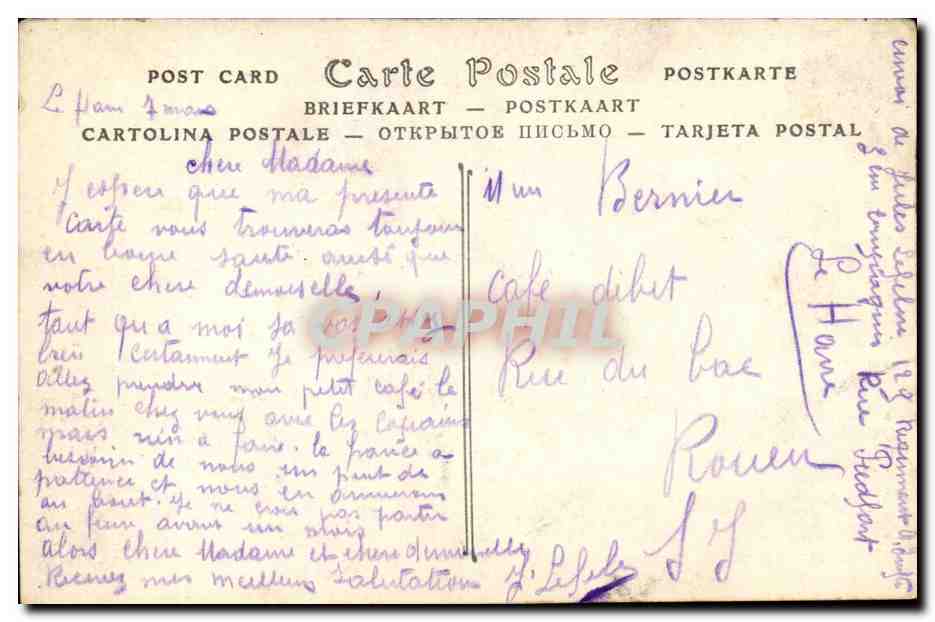 POST CARD Carte Postale POSTKARTE
BRIEFKAART — POSTKAART
CARTOLINA POSTALE — ОТКРЫТОЕ ПИСЬМО — TARJETA POSTAL
Le 7 mars
chere Madame
J espere que ma presente
Carte vous trouveras toujour
en bonne santé ausse que
votre chere demoiselle,
tant qu a moi sa vas
bien certainment Je prefererais
allez prendre mon petit café le
matin chez vous avec les copains
mais rien a faire. la france a
besoin de nous un peut de
patience et nous en
au bout. Je ne crois pas partir
au feux avant un mois
alors chere Madame et chere demoiselle
Recevez mes meilleurs Salutation J. Lefeb
Bernier
café débit
Rue du bac
Rouen
S J
envoi de Jules 129 Regiment
Rue
Le Havre
CPAPHIL